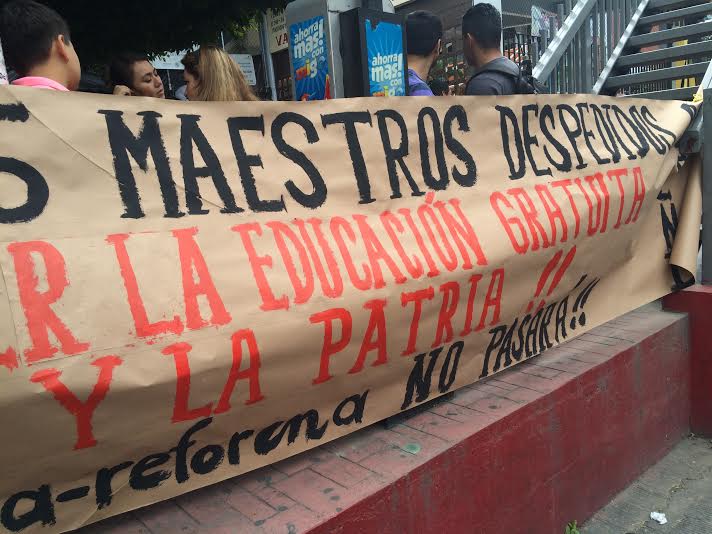 MAESTROS DESPEDIDOS
LA EDUCACIÓN GRATUITA
Y LA PATRIA !!
a-reforma NO PASARÁ!!
ahorra
mas!
con
ahorra
mas!
con